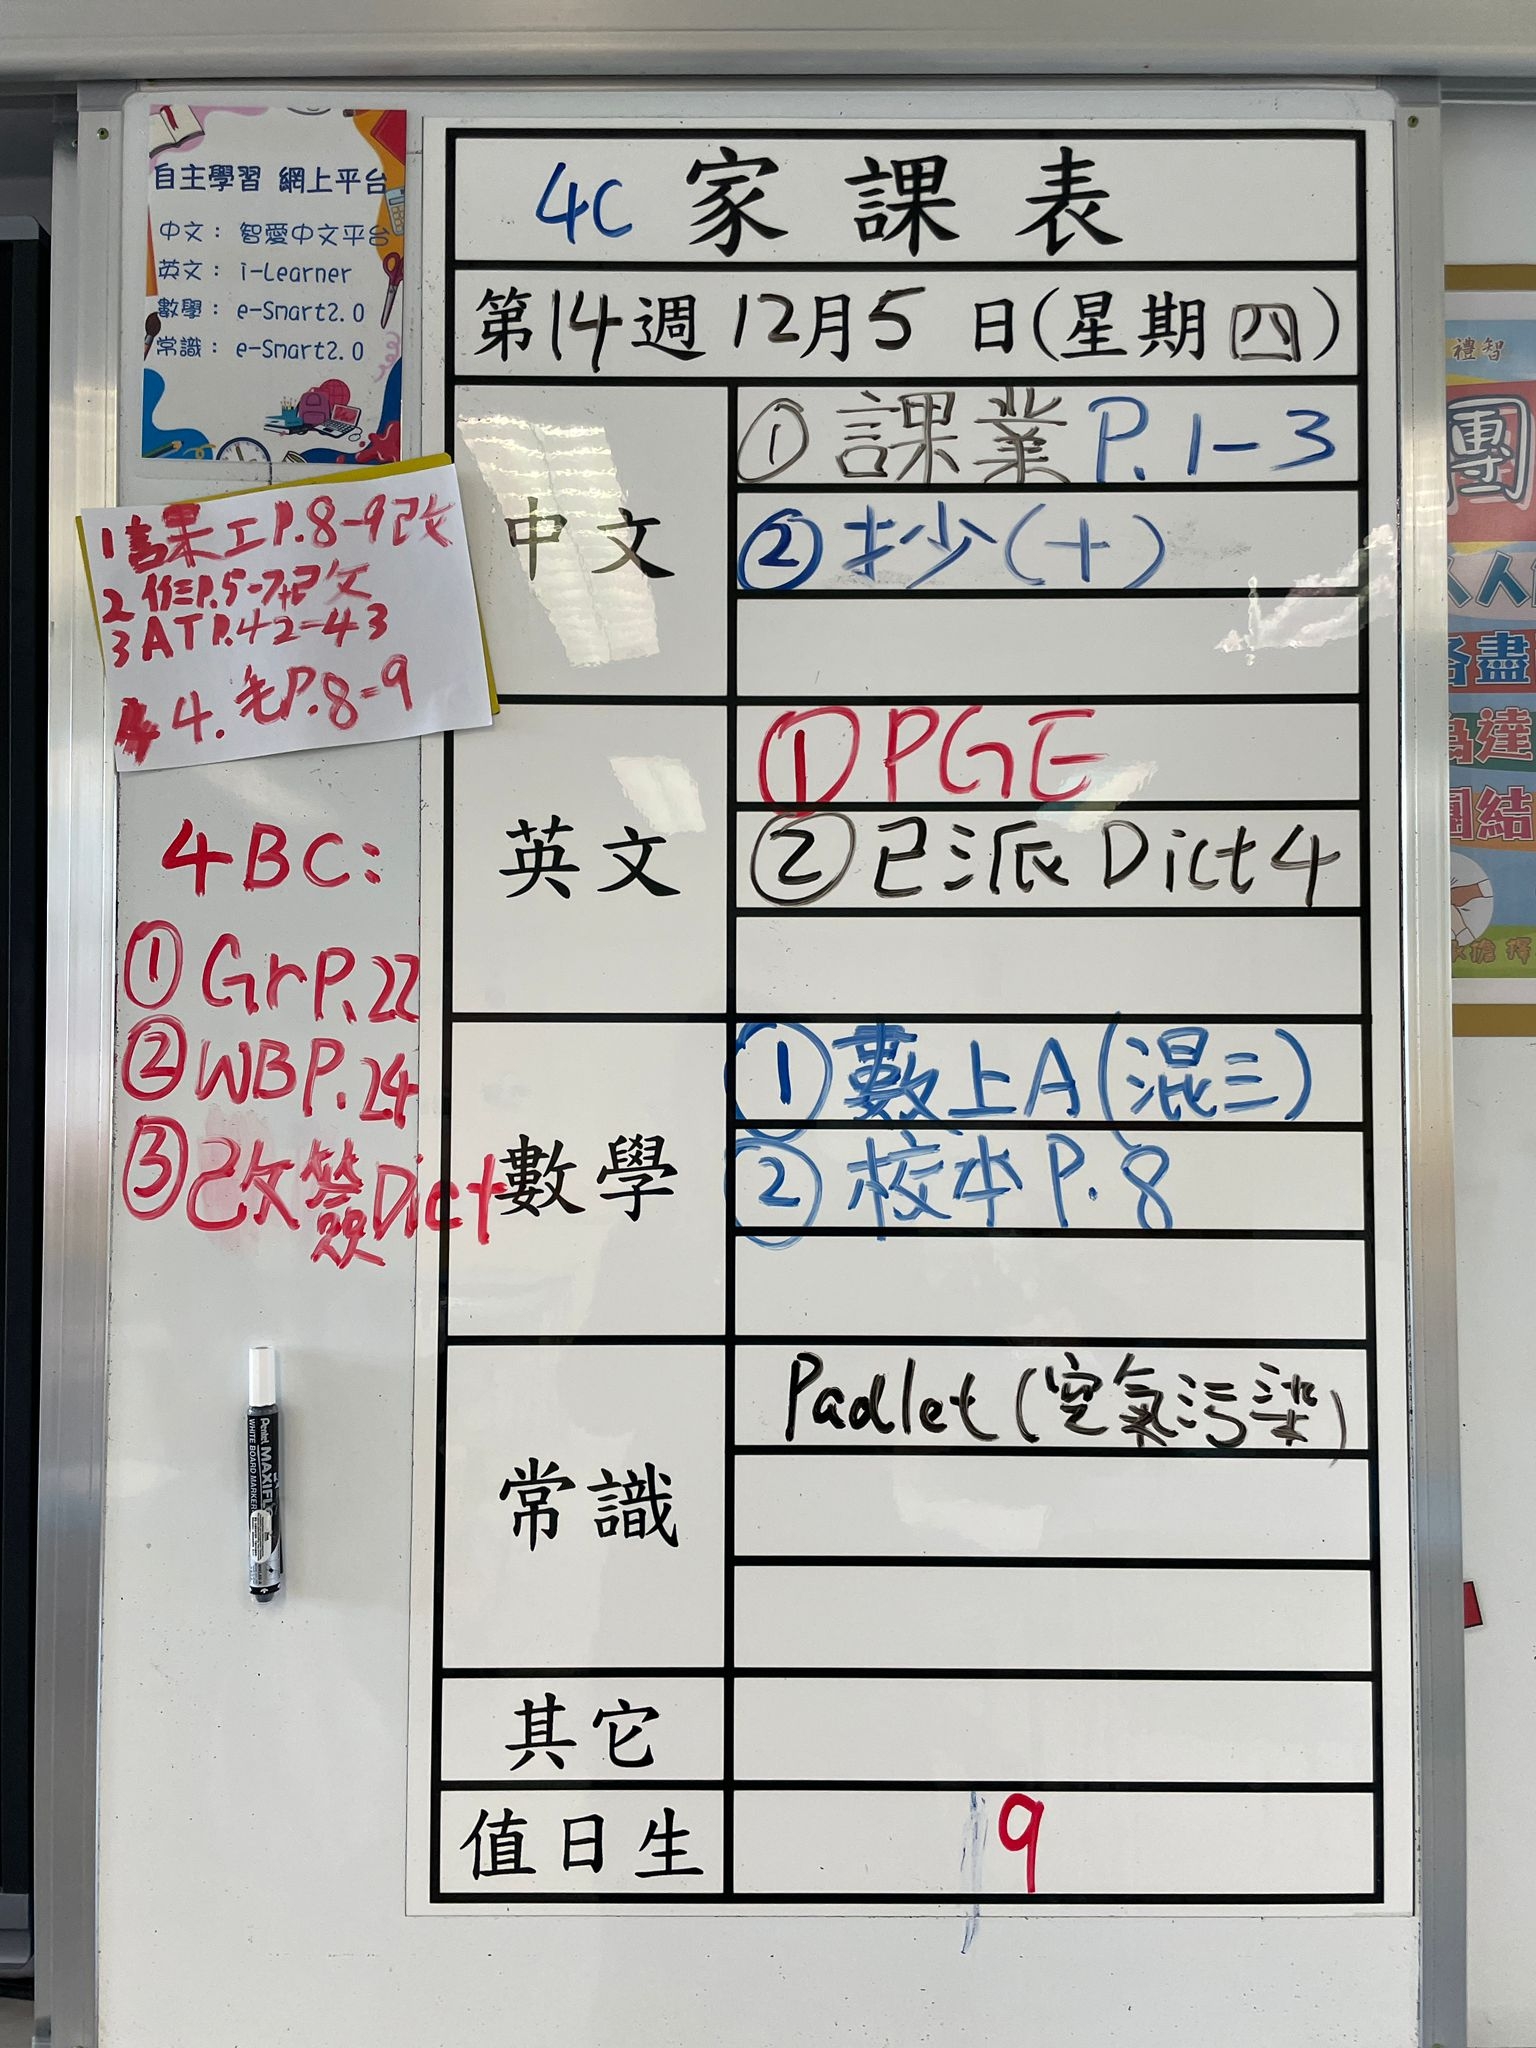 自主學習 網上平台
中文： 智愛中文平台
英文： i-Learner
數學： e-Smart2.0
常識： e-Smart2.0
1 課工P.8-9已改
2 作P.5-7+已改
3 ATP.42-43
4. 毛P.8-9
4BC:
① GrP.22
② WBP.24
③ 已改簽Dict
4C 家課表
第14週 12月5日(星期四)
中文
① 課業P.1-3
② 抄(十)
英文
① PGE
② 已派Dict4
數學
① 數上A(混三)
② 校本P.8
常識
Padlet(空氣污染)
其它
值日生
9
Pentel MAXIFLO
WHITE BOARD MARKER
禮智
團
人人
盡
為達
團結
擔 擇